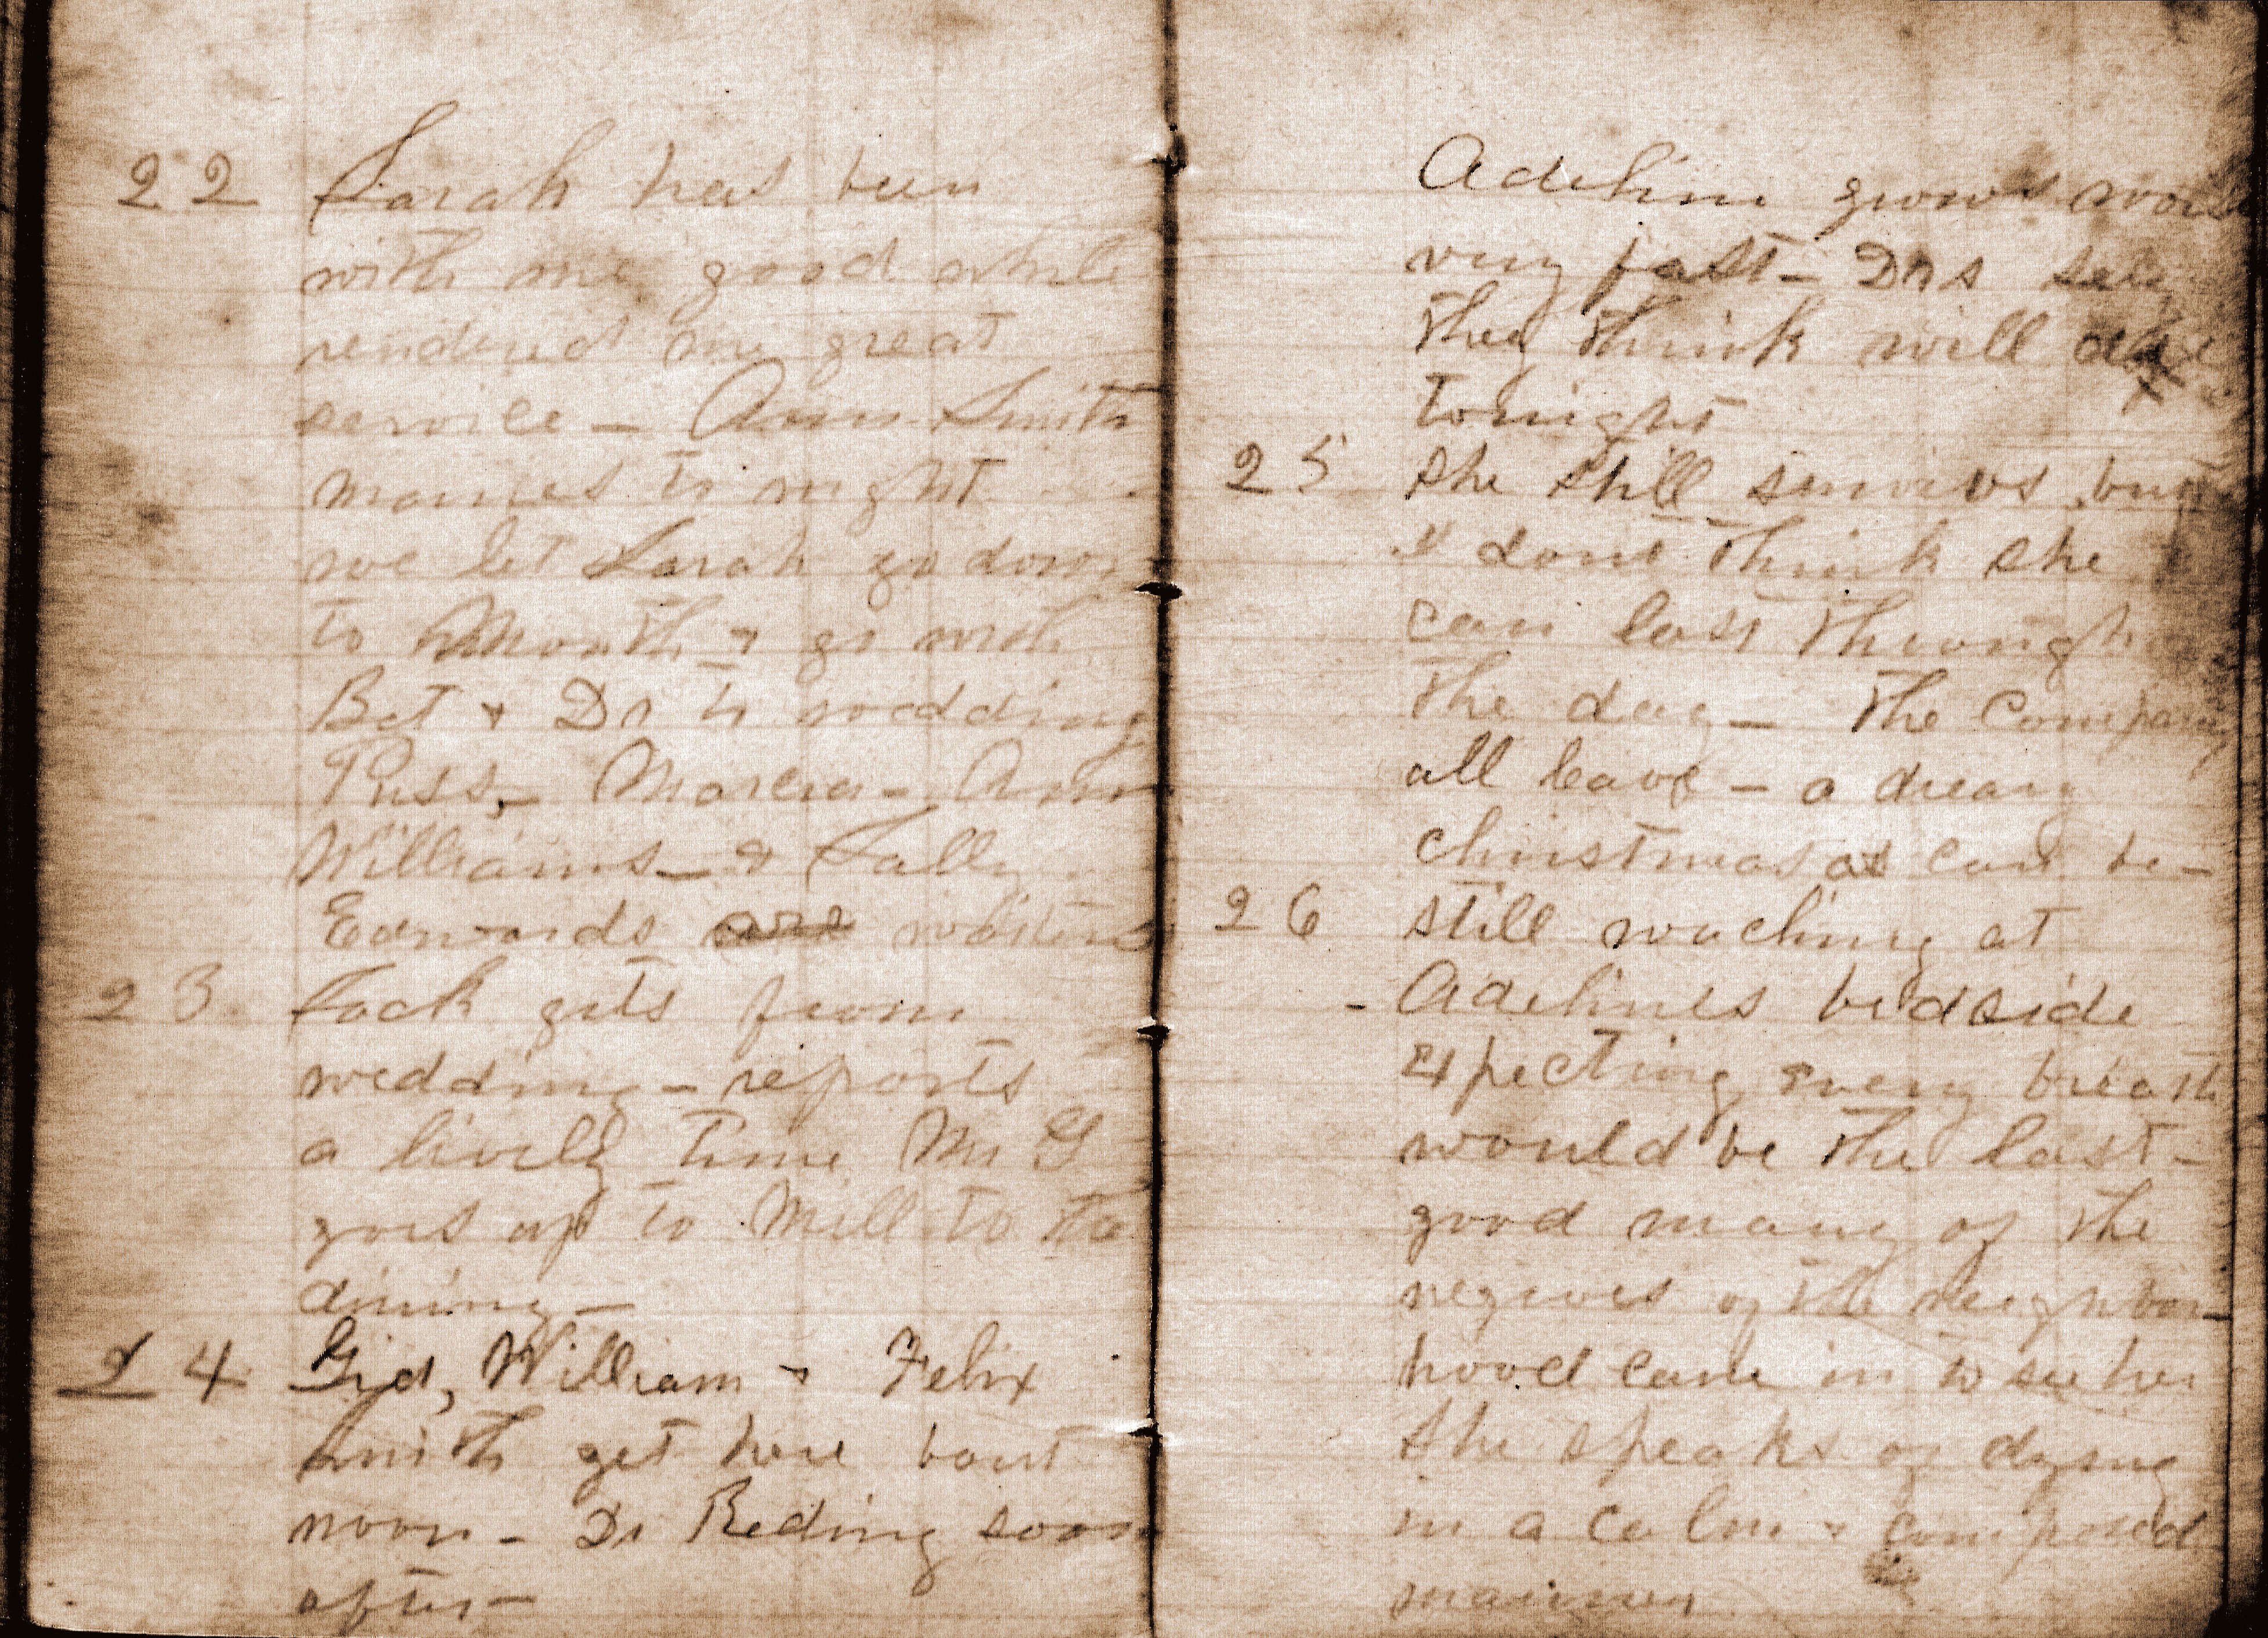 22 Sarah has been
with me good while
rendered me great
service - Ann Smith
marries to night
we let Sarah go down
to Mouth & go with
Bet & Dr to wedding
Puss, - Marcia - Ann
Williams - & Sally
Edwards are waiters
23 Jack gets from
wedding - reports
a lively time Mr G
goes up to Mill to the
dining -
24 Gid, William & Felix
Smith get here bout
noon - Dr Reding soon
after -
Adeline grows worse
very fast - Drs say
they think will die
tonight
25 She still survives but
I dont think she
can last through
the day - The Company
all leave - a dreary
christmas as can be -
26 still waching at
- Adelines bedside
expecting every breath
would be the last -
good many of the
negroes of the neighbor-
hood came in to see her
She speaks of dying
in a calm & composed
manner